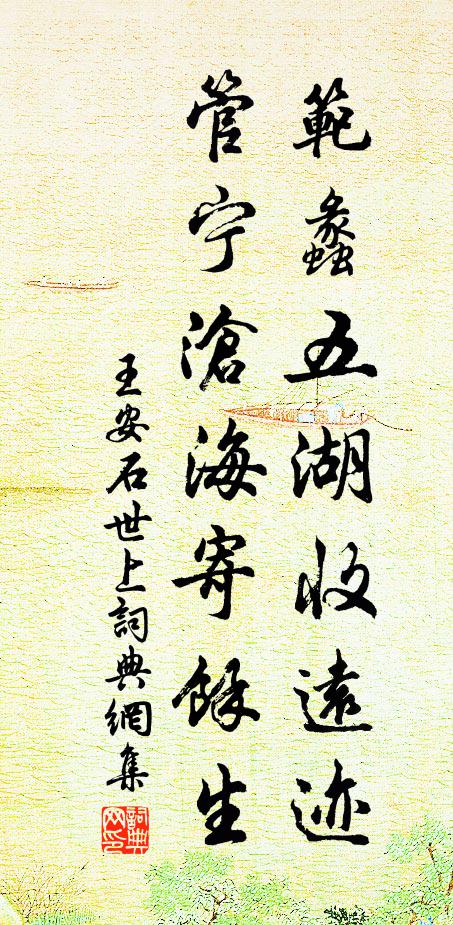 範蠡五湖收遠迹
管宁滄海寄餘生
王安石世上詞典網集
詞典網印